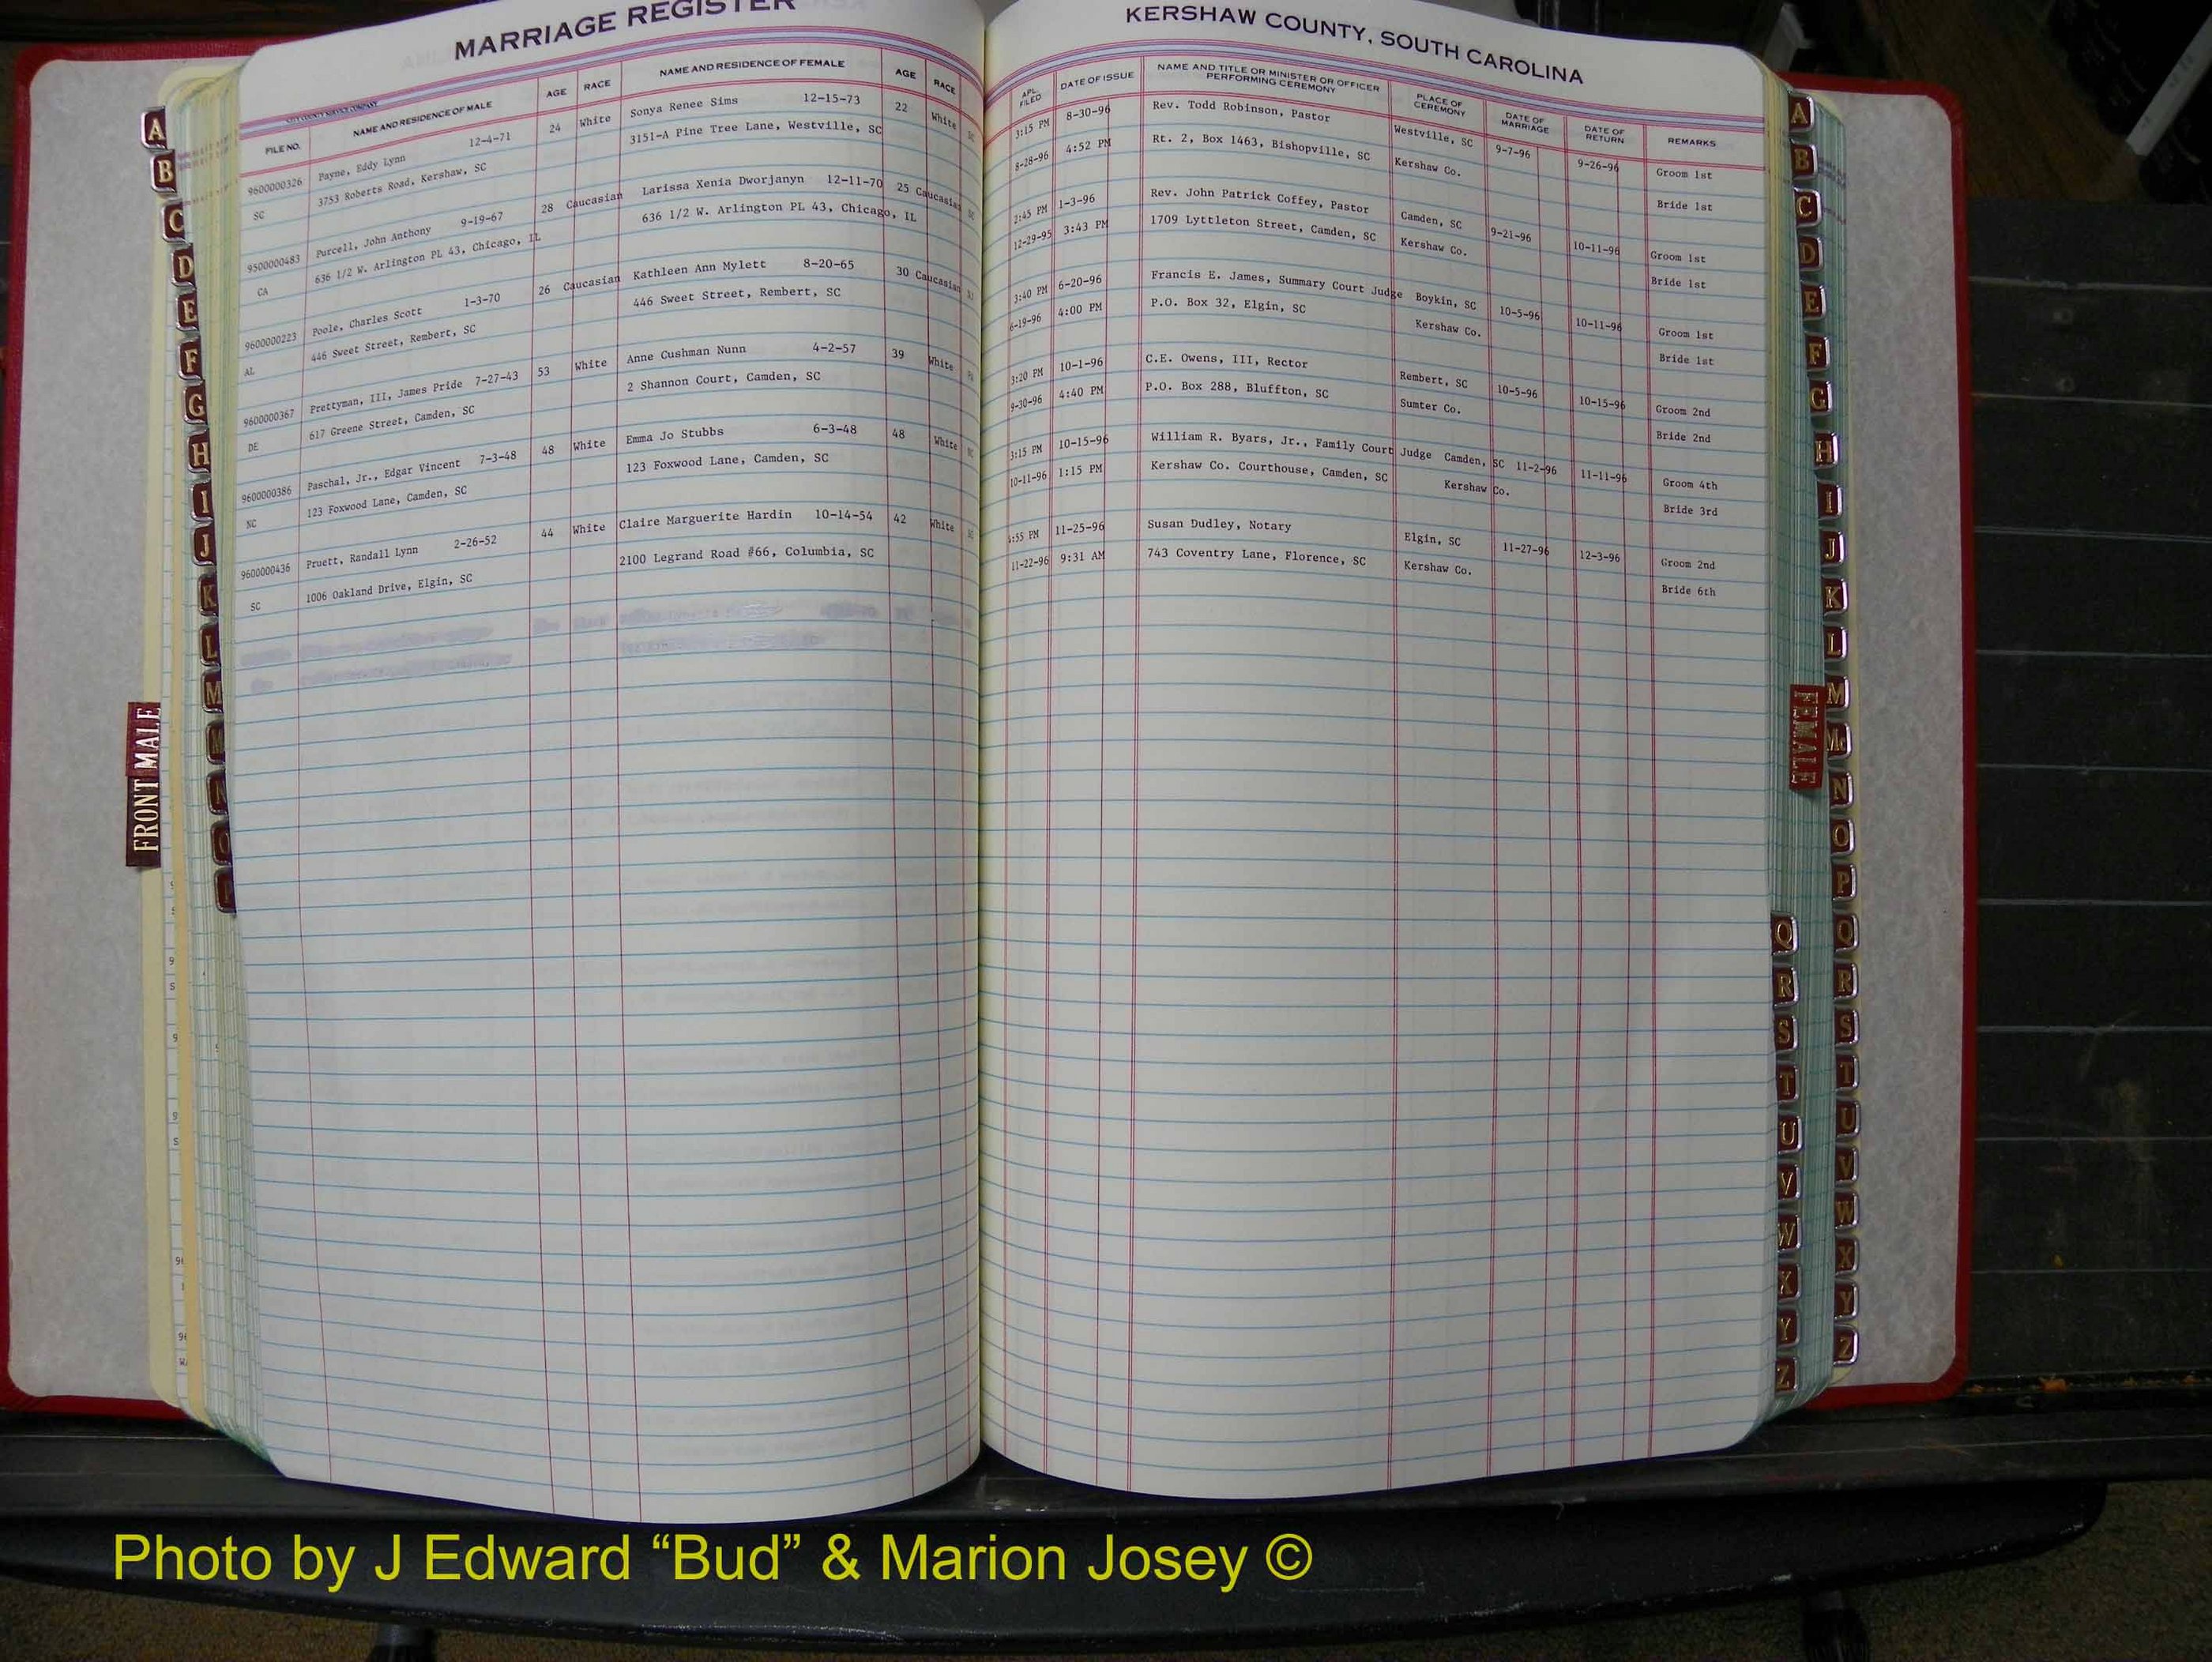 MARRIAGE REGISTER
FILE NO. NAME AND RESIDENCE OF MALE AGE RACE NAME AND RESIDENCE OF FEMALE AGE RACE
9600000326 Payne, Eddy Lynn 12-4-71 24 White Sonya Renee Sims 12-15-73 22 White
SC 3753 Roberts Road, Kershaw, SC 3151-A Pine Tree Lane, Westville, SC
9500000483 Purcell, John Anthony 9-19-67 28 Caucasian Larissa Xenia Dworjanyn 12-11-70 25 Caucasian
CA 636 1/2 W. Arlington PL 43, Chicago, IL 636 1/2 W. Arlington PL 43, Chicago, IL
9600000223 Poole, Charles Scott 1-3-70 26 Caucasian Kathleen Ann Mylett 8-20-65 30 Caucasian
AL 446 Sweet Street, Rembert, SC 446 Sweet Street, Rembert, SC
9600000367 Prettyman, III, James Pride 7-27-43 53 White Anne Cushman Nunn 4-2-57 39 White
DE 617 Greene Street, Camden, SC 2 Shannon Court, Camden, SC
9600000386 Paschal, Jr., Edgar Vincent 7-3-48 48 White Emma Jo Stubbs 6-3-48 48 White
NC 123 Foxwood Lane, Camden, SC 123 Foxwood Lane, Camden, SC
9600000436 Pruett, Randall Lynn 2-26-52 44 White Claire Marguerite Hardin 10-14-54 42 White
SC 1006 Oakland Drive, Elgin, SC 2100 Legrand Road #66, Columbia, SC
KERSHAW COUNTY, SOUTH CAROLINA
APL. FILED DATE OF ISSUE NAME AND TITLE OR MINISTER OR OFFICER PERFORMING CEREMONY PLACE OF CEREMONY DATE OF MARRIAGE DATE OF RETURN REMARKS
3:15 PM 8-30-96 Rev. Todd Robinson, Pastor Westville, SC 9-7-96 9-26-96 Groom 1st
8-28-96 4:52 PM Rt. 2, Box 1463, Bishopville, SC Kershaw Co. Bride 1st
2:45 PM 1-3-96 Rev. John Patrick Coffey, Pastor Camden, SC 9-21-96 10-11-96 Groom 1st
12-29-95 3:43 PM 1709 Lyttleton Street, Camden, SC Kershaw Co. Bride 1st
3:40 PM 6-20-96 Francis E. James, Summary Court Judge Boykin, SC 10-5-96 10-11-96 Groom 1st
6-19-96 4:00 PM P.O. Box 32, Elgin, SC Kershaw Co. Bride 1st
3:20 PM 10-1-96 C.E. Owens, III, Rector Rembert, SC 10-5-96 10-15-96 Groom 2nd
9-30-96 4:40 PM P.O. Box 288, Bluffton, SC Sumter Co. Bride 2nd
3:15 PM 10-15-96 William R. Byars, Jr., Family Court Judge Camden, SC 11-2-96 11-11-96 Groom 4th
10-11-96 1:15 PM Kershaw Co. Courthouse, Camden, SC Kershaw Co. Bride 3rd
4:55 PM 11-25-96 Susan Dudley, Notary Elgin, SC 11-27-96 12-3-96 Groom 2nd
11-22-96 9:31 AM 743 Coventry Lane, Florence, SC Kershaw Co. Bride 6th
A
B
C
D
E
F
G
H
I
J
K
L
M
N
O
P
FRONT MALE
A
B
C
D
E
F
G
H
I
J
K
L
M
Mc
N
O
P
Q
R
S
T
U
V
W
X
Y
Z
FEMALE
Q
R
S
T
U
V
W
X
Y
Z
Photo by J Edward “Bud” & Marion Josey ©